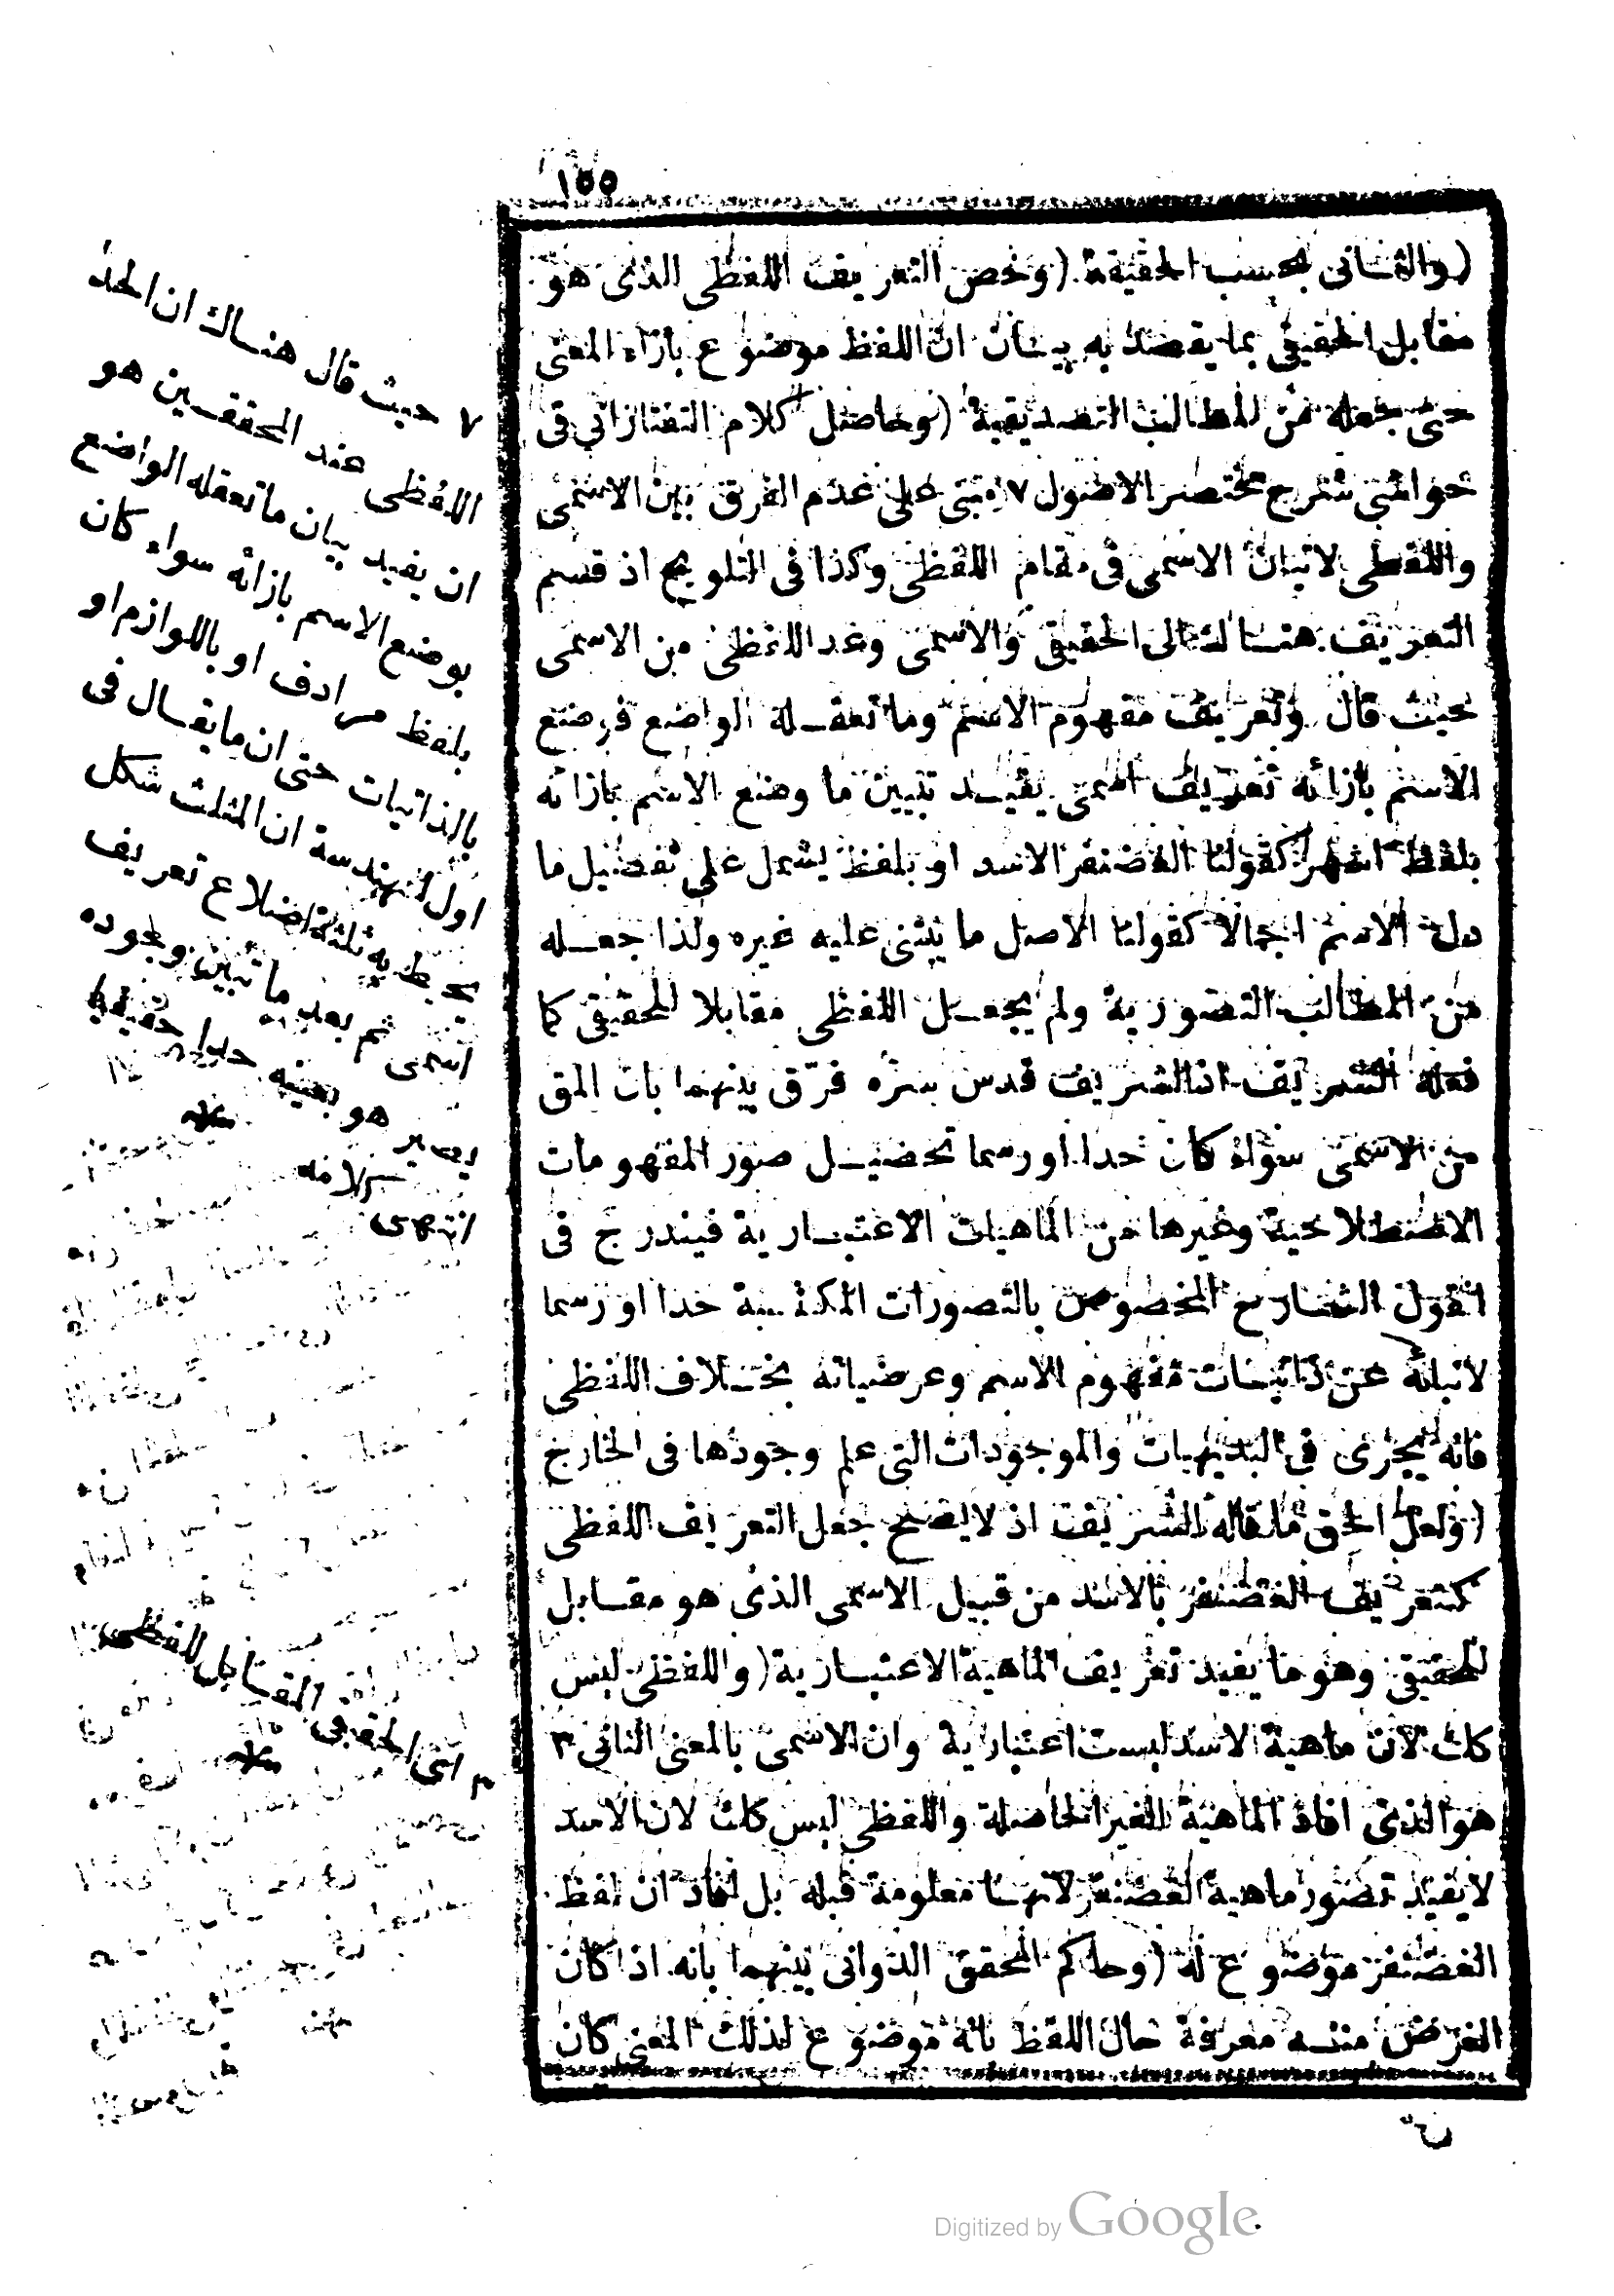 ١٥٥
(والثانى بحسب الحقيقة (وخص التعريف اللفظى الذى هو
مقابل الحقيقى بما يقصد به بيان ان اللفظ موضوع بازاء المعنى
حتى جعله من المطالب التصديقية (وحاصل كلام التفتازانى فى
حواشى شرح مختصر الاصول ٧ مبنى على عدم الفرق بين الاسمى
واللفظى لاتيان الاسمى فى مقام اللفظى وكذا فى التلويح اذ قسم
التعريف هناك الى الحقيقى والاسمى وعد اللفظى من الاسمى
حيث قال وتعريف مفهوم الاسم وما تعقله الواضع فوضع
الاسم بازائه تعريف اسمى يفيد تبيين ما وضع الاسم بازائه
بلفظ اشهر كقولنا الغضنفر الاسد او بلفظ يشمل على تفصيل ما
دل الاسم اجمالا كقولنا الاصل ما يبتنى عليه غيره ولذا جعله
من المطالب التصورية ولم يجعل اللفظى مقابلا للحقيقى كما
فعله الشريف اذ الشريف قدس سره فرّق بينهما بان المق
من الاسمى سواء كان حدا او رسما تحصيل صور المفهومات
الاصطلاحية وغيرها من الماهيات الاعتبارية فيندرج فى
القول الشارح المخصوص بالتصورات المكتسبة حدا او رسما
لانبائه عن ذاتيات مفهوم الاسم وعرضياته بخلاف اللفظى
فانه يجرى فى البديهيات والموجودات التى علم وجودها فى الخارج
(ولعل الحق ما قاله الشريف اذ لا يصح جعل التعريف اللفظى
كتعريف الغضنفر بالاسد من قبيل الاسمى الذى هو مقابل
للحقيقى وهو ما يفيد تعريف الماهية الاعتبارية (واللفظى ليس
كك لان ماهية الاسد ليست اعتبارية وان الاسمى بالمعنى الثانى ٣
هو الذى افاد الماهية الغير الحاصلة واللفظى ليس كك لان الاسد
لا يفيد تصور ماهية الغضنفر لانها معلومة قبله بل افاد ان لفظ
الغضنفر موضوع له (وحاكم المحقق الدوانى بينهما بانه اذا كان
الغرض منه معرفة حال اللفظ بانه موضوع لذلك المعنى كان
٧ حيث قال هناك ان الحد
اللفظى عند المحققين هو
ان يفيد بيان ما تعقله الواضع
بوضع الاسم بازائه سواء كان
بلفظ مرادف او باللوازم او
بالذاتيات حتى ان ما يقال فى
اول الهندسة ان المثلث شكل
يحيط به ثلثة اضلاع تعريف
اسمى ثم بعد ما تبين وجوده
يصير هو بعينه حدا حقيقيا
انتهى كلامه
٣ اى الحقيقى المقابل للفظى
Digitized by Google